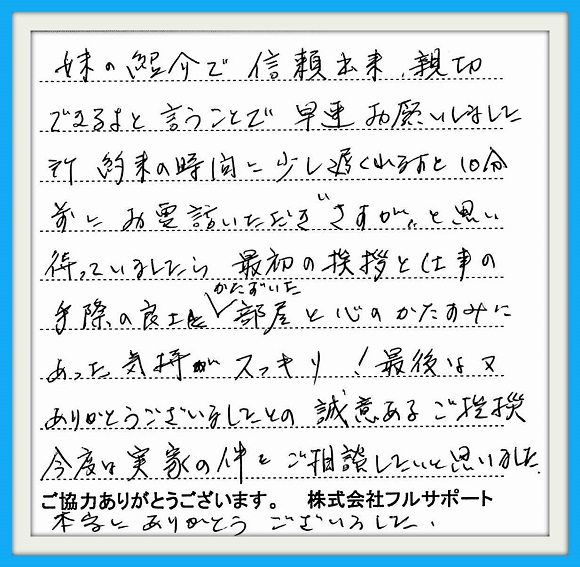 妹の紹介で 信頼出来、親切
できるよと言うことで 早速 お願いしました
所 約束の時間に 少し遅くれますと10分
前に お電話いただき"さすが"と思い
待っていましたら 最初の挨拶と仕事の
かたずいた
手際の良さと 部屋と心のかたすみに
あった気持がスッキリ!最後は又
ありがとうございましたとの 誠意ある ご挨拶
今度は実家の件を ご相談したいと思いました。
ご協力ありがとうございます。 株式会社フルサポート
本当に ありがとう ございました。